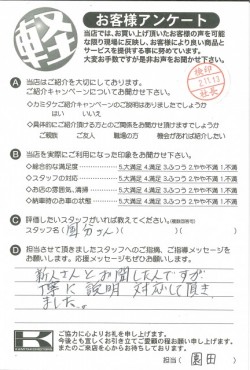 軽
お客様アンケート
当店では、お買い上げ頂いたお客様の声を可能
な限り現場に反映し、お客様により良い商品と
サービスを提供する事に努めています。
大変お手数ですが是非お声をお聞かせ下さい。
検印
社長
A 当店はご紹介を大切にしております。
ご紹介キャンペーンについてお聞かせ下さい。
◇カミタケご紹介キャンペーンのご説明はありましたでしょうか
はい いいえ
◇具体的にご紹介頂ける方とのご関係をお聞かせ頂けますでしょうか
ご親族 ご友人 職場の方 機会があれば紹介したい
B 当店を実際にご利用になった印象をお聞かせ下さい。
◇総合的な満足度 5.大満足 4.満足 3.ふつう 2.やや不満 1.不満
◇スタッフの対応 5.大満足 4.満足 3.ふつう 2.やや不満 1.不満
◇お店の雰囲気、清掃 5.大満足 4.満足 3.ふつう 2.やや不満 1.不満
◇納車時のお車の状態 5.大満足 4.満足 3.ふつう 2.やや不満 1.不満
C 評価したいスタッフがいれば教えてください。(複数回答可)
スタッフ名( さん )( )( )
D 担当させて頂きましたスタッフへのご指摘、ご指導メッセージを
お願いします。応援メッセージもぜひお願いします。
新人さんとお聞したんですが
丁寧に説明 対応して頂き
ました。
K
ご協力に心よりお礼を申し上げます。
今後とも宜しくお引き立てご愛顧の程お願い申し上げます。
またのご来店を心からお待ちしております。
担当( 園田 )